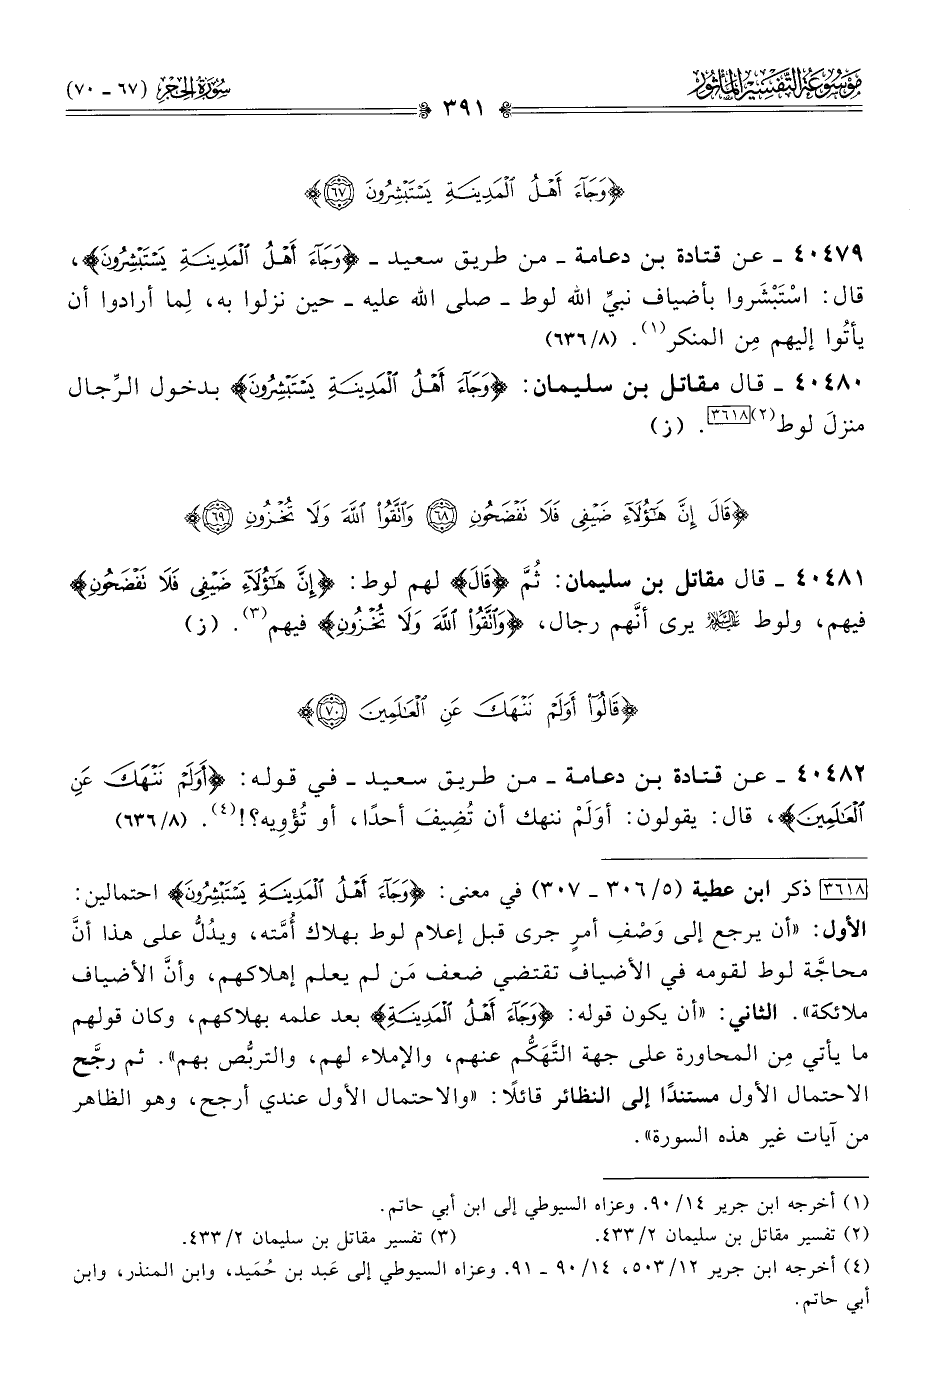 مَوْسُوعَةُ التَّفْسِيرِ المَأْثُورِ
سُورَةُ الحِجْرِ (٦٧ - ٧٠)
٣٩١
﴿وَجَآءَ أَهْلُ ٱلْمَدِينَةِ يَسْتَبْشِرُونَ ٦٧﴾
٤٠٤٧٩ - عن قتادة بن دعامة - من طريق سعيد - ﴿وَجَآءَ أَهْلُ ٱلْمَدِينَةِ يَسْتَبْشِرُونَ﴾،
قال: اسْتَبْشَروا بأضياف نبيِّ الله لوط - صلى الله عليه - حين نزلوا به، لِما أرادوا أن
يأتُوا إليهم مِن المنكر(١). (٨/ ٦٣٦)
٤٠٤٨٠ - قال مقاتل بن سليمان: ﴿وَجَآءَ أَهْلُ ٱلْمَدِينَةِ يَسْتَبْشِرُونَ﴾ بدخول الرِّجال
منزلَ لوط(٢)[٣٦١٨]. (ز)
﴿قَالَ إِنَّ هَٰٓؤُلَآءِ ضَيْفِى فَلَا تَفْضَحُونِ ٦٨ وَٱتَّقُوا۟ ٱللَّهَ وَلَا تُخْزُونِ ٦٩﴾
٤٠٤٨١ - قال مقاتل بن سليمان: ثُمَّ ﴿قَالَ﴾ لهم لوط: ﴿إِنَّ هَٰٓؤُلَآءِ ضَيْفِى فَلَا تَفْضَحُونِ﴾
فيهم، ولوط عليه السلام يرى أنَّهم رجال، ﴿وَٱتَّقُوا۟ ٱللَّهَ وَلَا تُخْزُونِ﴾ فيهم(٣). (ز)
﴿قَالُوٓا۟ أَوَلَمْ نَنْهَكَ عَنِ ٱلْعَٰلَمِينَ ٧٠﴾
٤٠٤٨٢ - عن قتادة بن دعامة - من طريق سعيد - في قوله: ﴿أَوَلَمْ نَنْهَكَ عَنِ
ٱلْعَٰلَمِينَ﴾، قال: يقولون: أوَلَمْ ننهك أن تُضِيفَ أحدًا، أو تُؤْوِيه؟!(٤). (٨/ ٦٣٦)
[٣٦١٨] ذكر ابن عطية (٥/ ٣٠٦ - ٣٠٧) في معنى: ﴿وَجَآءَ أَهْلُ ٱلْمَدِينَةِ يَسْتَبْشِرُونَ﴾ احتمالين:
الأول: «أن يرجع إلى وَصْفِ أمرٍ جرى قبل إعلام لوط بهلاك أُمَّته، ويدُلُّ على هذا أنَّ
محاجَّة لوط لقومه في الأضياف تقتضي ضعف مَن لم يعلم إهلاكهم، وأنَّ الأضياف
ملائكة». الثاني: «أن يكون قوله: ﴿وَجَآءَ أَهْلُ ٱلْمَدِينَةِ﴾ بعد علمه بهلاكهم، وكان قولهم
ما يأتي مِن المحاورة على جهة التَّهَكُّم عنهم، والإملاء لهم، والتربُّص بهم». ثم رجَّح
الاحتمال الأول مستندًا إلى النظائر قائلًا: «والاحتمال الأول عندي أرجح، وهو الظاهر
من آيات غير هذه السورة».
(١) أخرجه ابن جرير ١٤/ ٩٠. وعزاه السيوطي إلى ابن أبي حاتم.
(٢) تفسير مقاتل بن سليمان ٢/ ٤٣٣. (٣) تفسير مقاتل بن سليمان ٢/ ٤٣٣.
(٤) أخرجه ابن جرير ١٢/ ٥٠٣، ١٤/ ٩٠ - ٩١. وعزاه السيوطي إلى عَبد بن حُمَيد، وابن المنذر، وابن
أبي حاتم.